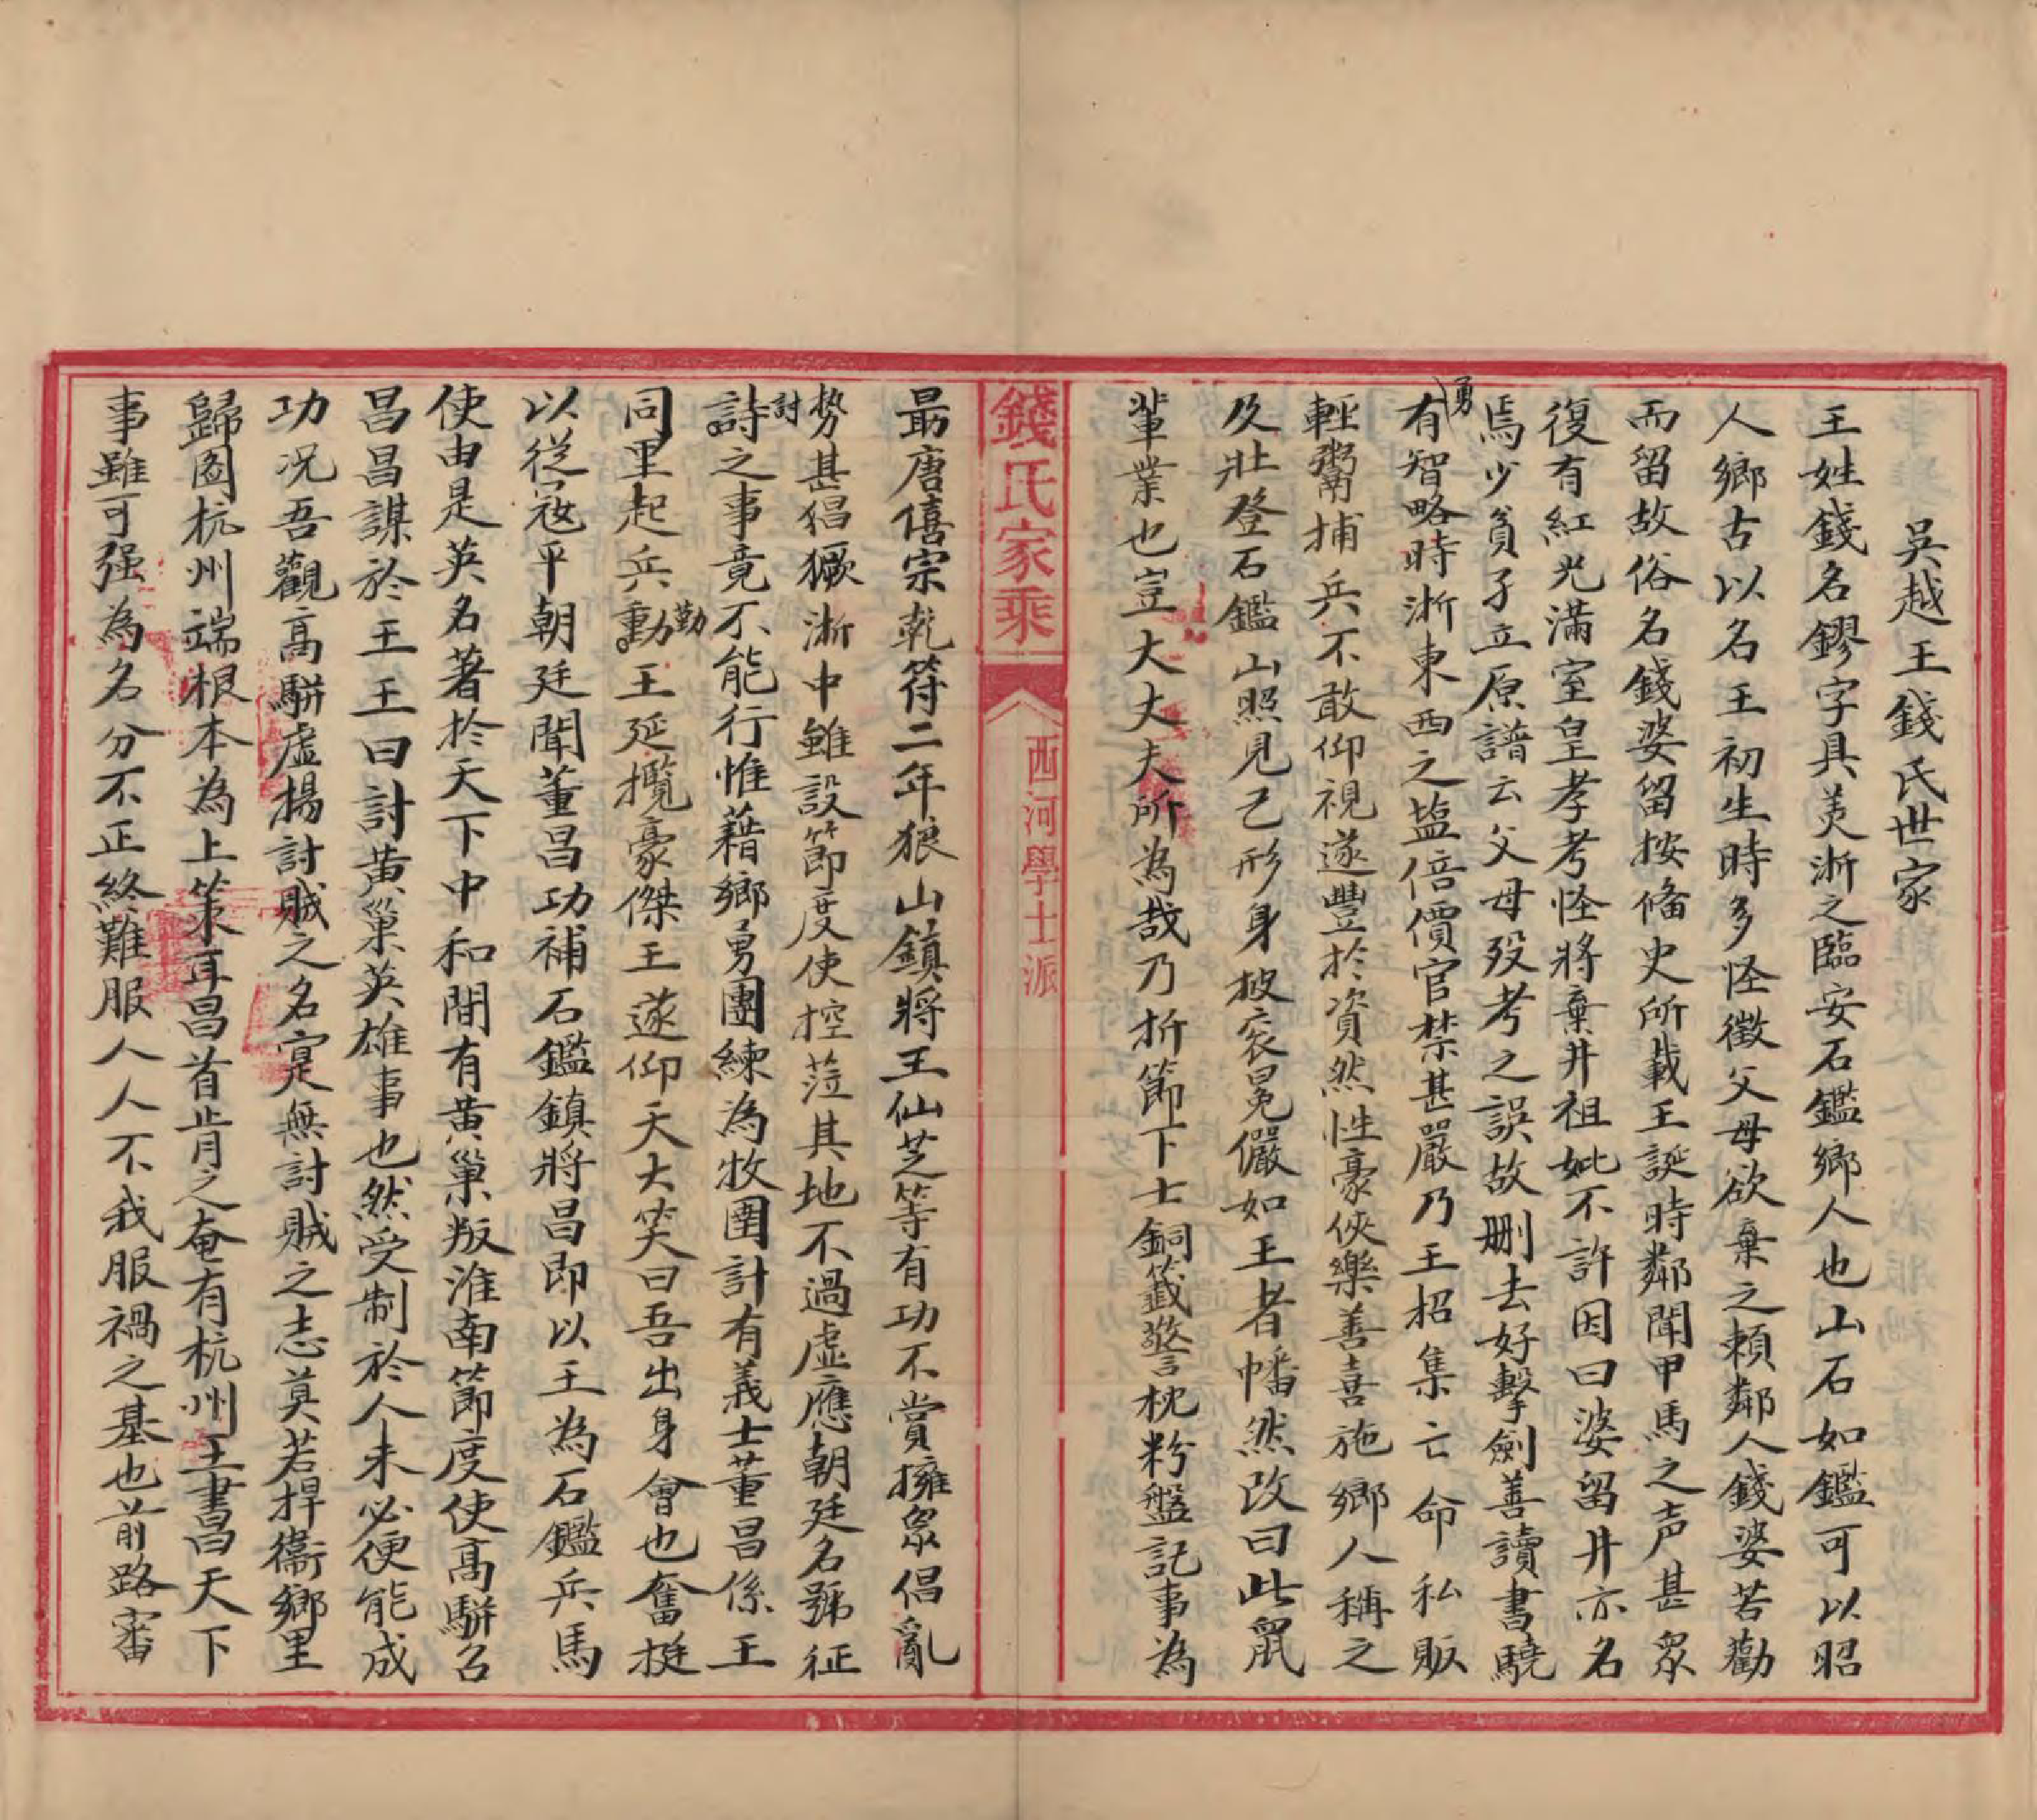 吳越王錢氏世家
王姓錢名鏐字具美浙之臨安石鑑鄉人也山石如鑑可以昭
人鄉古以名王初生時多怪徵父母欲棄之頼鄰人錢婆苦勸
而留故俗名錢婆留按偹史所載王誕時鄰聞甲馬之声甚眾
復有紅光滿室皇孝考怪將棄井祖妣不許因曰婆留井亦名
焉少貧孑立原譜云父母歿考之誤故删去好擊劍善讀書驍
勇
有智略時浙東西之盐倍價官禁甚嚴乃王招集亡命私販
輕鬻捕兵不敢仰視遂豐於資然性豪俠樂善喜施鄉人稱之
及壯登石鑑山照見己形身披衮冕儼如王者幡然改曰此鼠
輩業也豈大丈夫所為哉乃折節下士銅籤警枕粉盤記事為
錢氏家乘
西河學士派
最唐僖宗乾符二年狼山鎮將王仙芝等有功不賞擁眾倡亂
勢甚猖獗浙中雖設節度使控蒞其地不過虛應朝廷名號征
討
詩之事竟不能行惟藉鄉勇團練為牧圉計有義士董昌係王
同里起兵動王延攬豪傑王遂仰天大笑曰吾出身會也奮挺
勤
以從寇平朝廷聞董昌功補石鑑鎮將昌即以王為石鑑兵馬
使由是英名著於天下中和間有黄巢叛淮南節度使高駢召
昌昌謀於王王曰討黄巢英雄事也然受制於人未必便能成
功况吾觀高駢虛揚討賊之名寔無討賊之志莫若捍衞鄉里
歸图杭州端根本為上策耳昌首肯之奄有杭州王書曰天下
事雖可强為名分不正終難服人人不我服禍之基也前路審